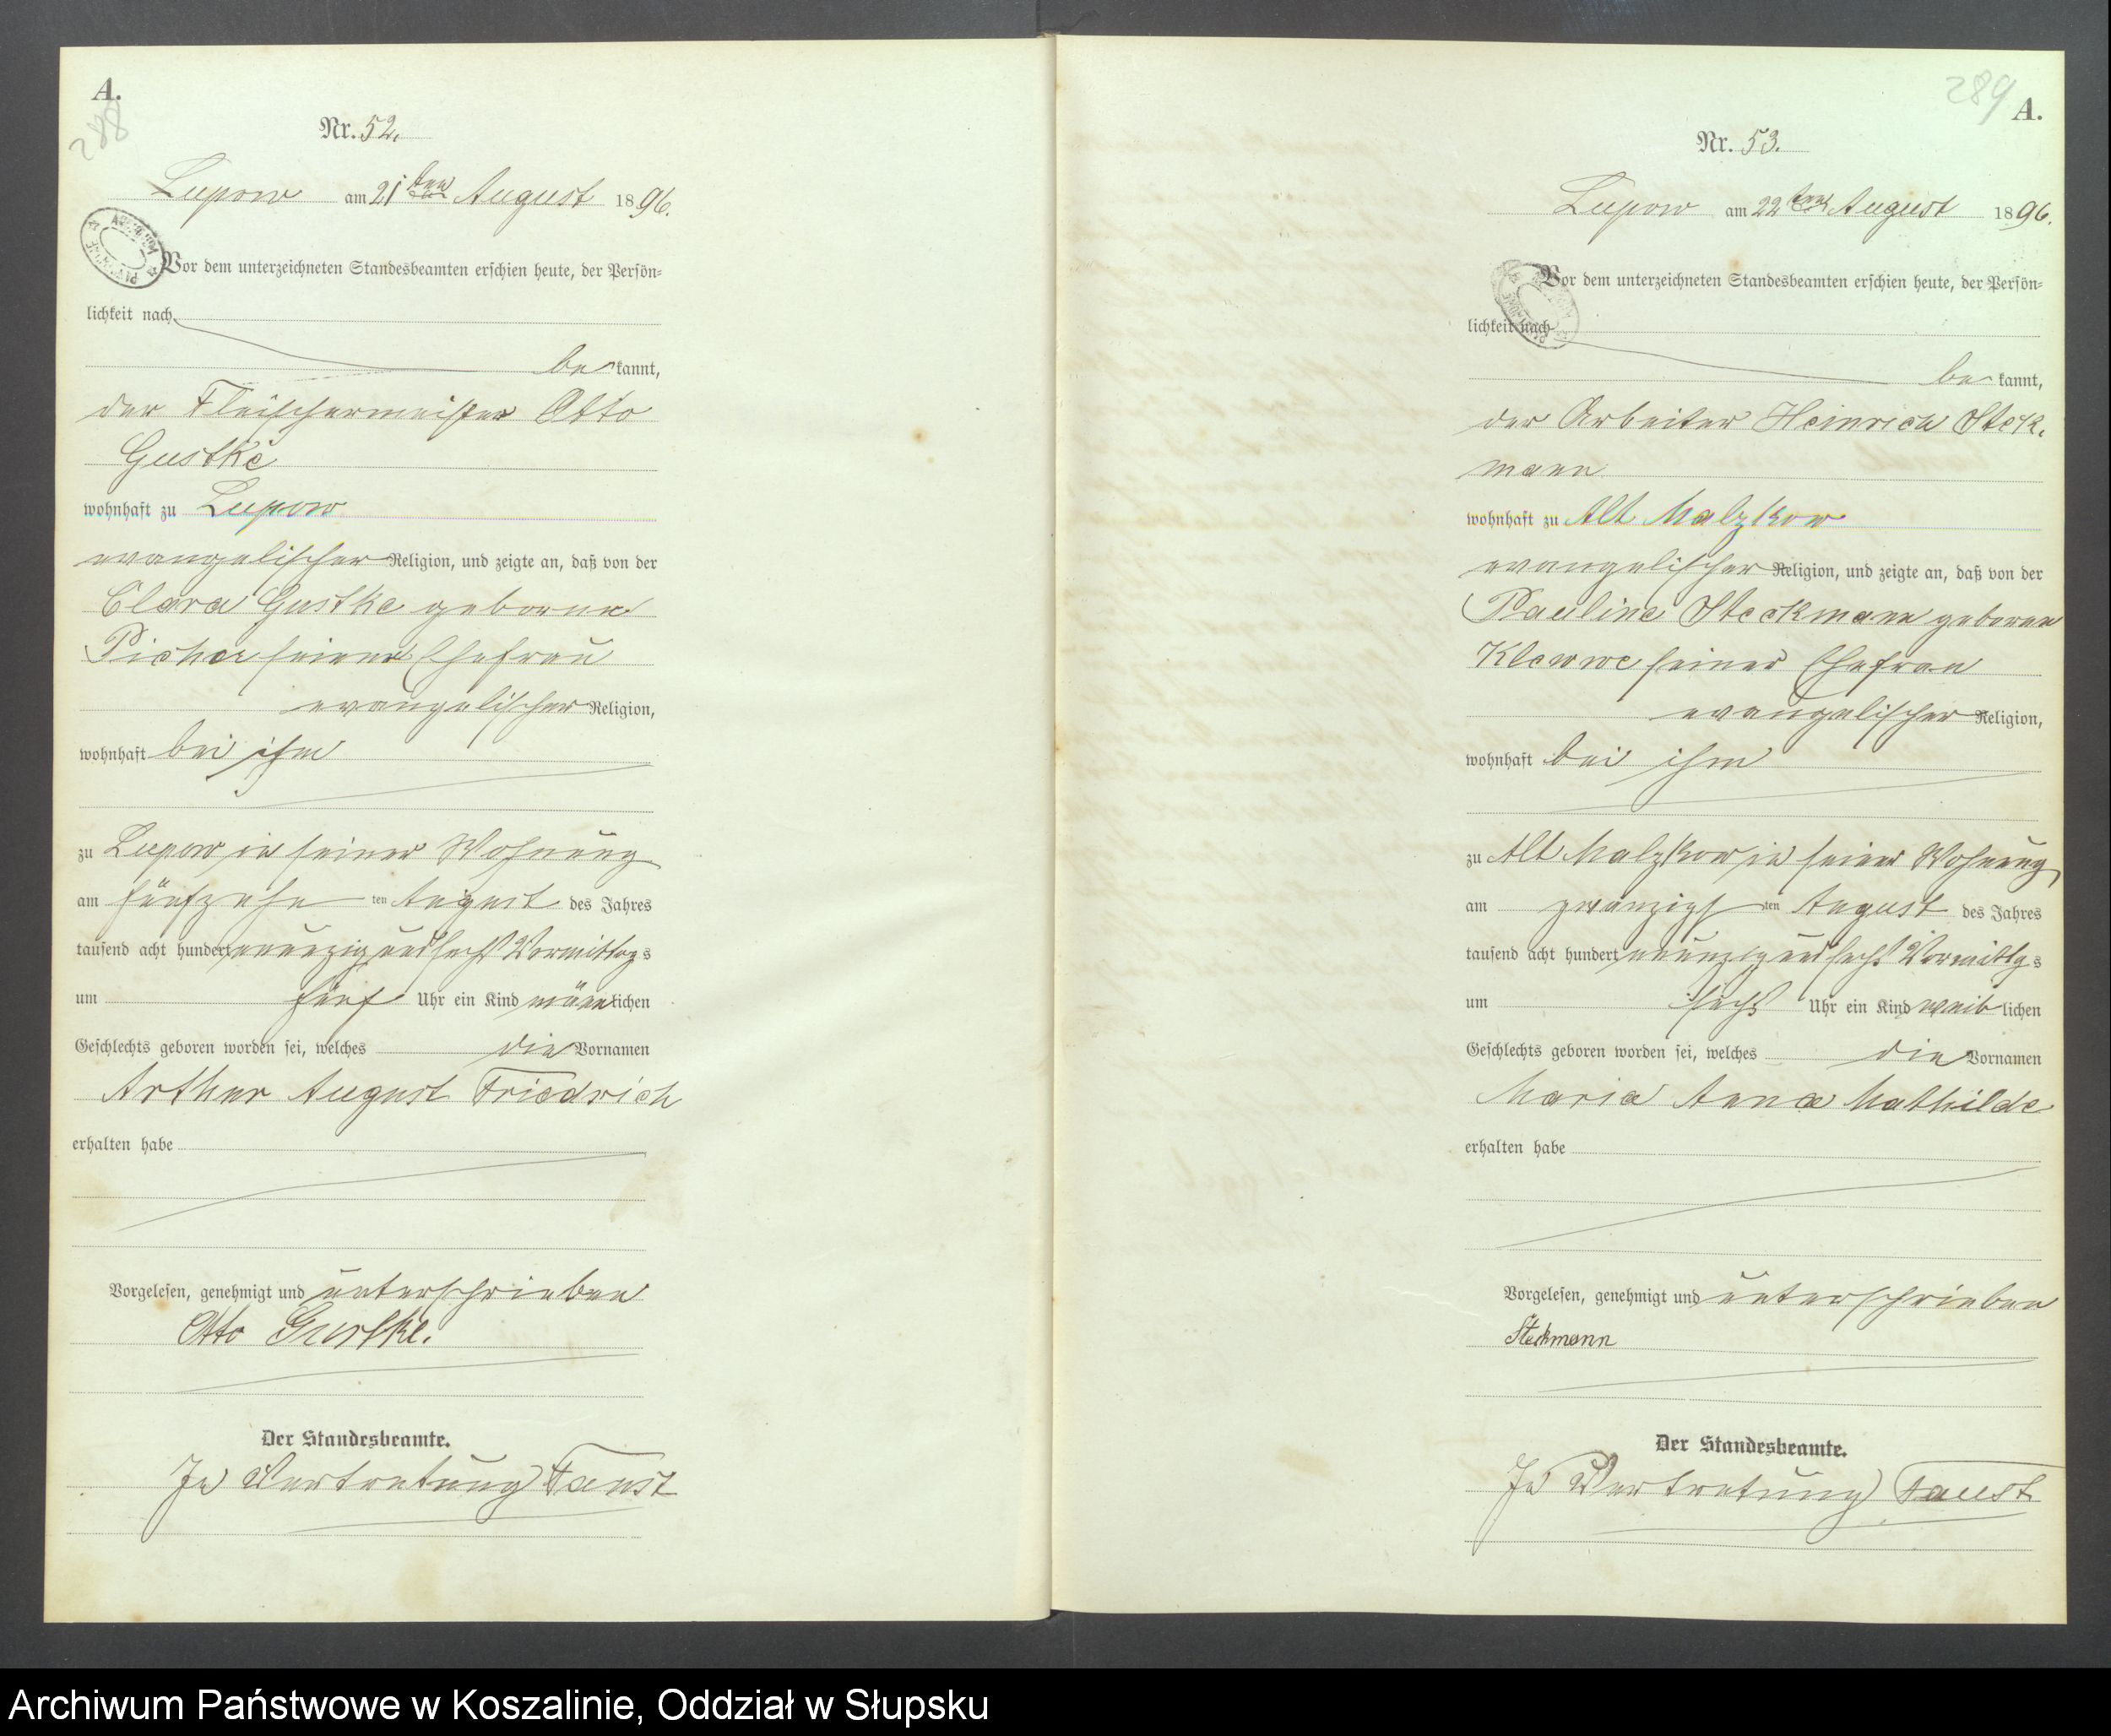 A.
288
Nr. 52.
Lupow am 21ten August 1896.
Vor dem unterzeichneten Standesbeamten erschien heute, der Persön-
lichkeit nach
bekannt,
der Fleischermeister Otto
Gustke
wohnhaft zu Lupow
evangelischer Religion, und zeigte an, daß von der
Clara Gustke geborene
Picher seiner Ehefrau
evangelischer Religion,
wohnhaft bei ihm
zu Lupow in seiner Wohnung
am fünfzehnten August des Jahres
tausend acht hundert neunzig und sechs Vormittags
um fünf Uhr ein Kind männlichen
Geschlechts geboren worden sei, welches die Vornamen
Arthur August Friedrich
erhalten habe
Vorgelesen, genehmigt und unterschrieben
Otto Gustke.
Der Standesbeamte.
In Vertretung Faust
289
A.
Nr. 53.
Lupow am 22ten August 1896.
Vor dem unterzeichneten Standesbeamten erschien heute, der Persön-
lichkeit nach
bekannt,
der Arbeiter Heinrich Steck-
mann
wohnhaft zu Alt Malzkow
evangelischer Religion, und zeigte an, daß von der
Pauline Steckmann geborene
Klewwe seiner Ehefrau
evangelischer Religion,
wohnhaft bei ihm
zu Alt Malzkow in seiner Wohnung
am zwanzigsten August des Jahres
tausend acht hundert neunzig und sechs Vormittgs
um sechs Uhr ein Kind weiblichen
Geschlechts geboren worden sei, welches die Vornamen
Maria Anna Mathilde
erhalten habe
Vorgelesen, genehmigt und unterschrieben
Steckmann
Der Standesbeamte.
In Vertretung Faust
Archiwum Państwowe w Koszalinie, Oddział w Słupsku